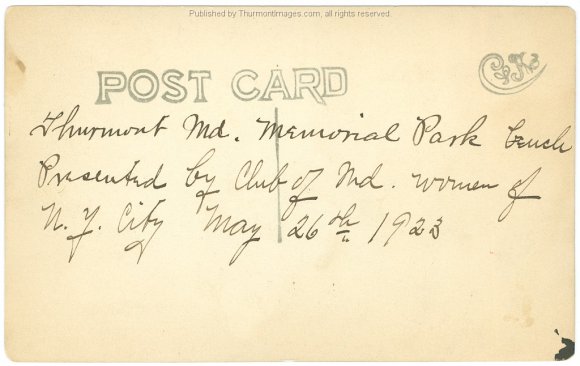 Published by ThurmontImages.com, all rights reserved.
POST CARD
Thurmont Md. Memorial Park bench
Presented by Club of Md. women of
N. Y. City May 26th, 1923